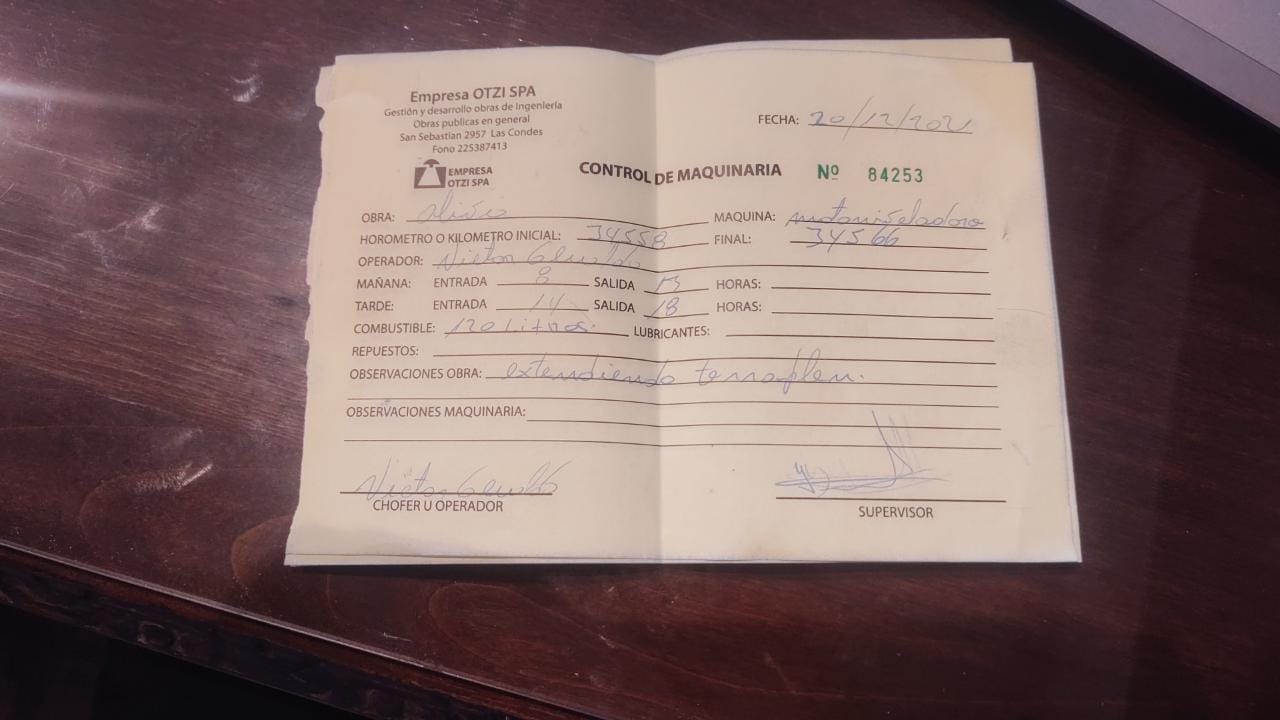 Empresa OTZI SPA
Gestión y desarrollo obras de Ingeniería
Obras publicas en general
San Sebastian 2957 Las Condes
Fono 225387413
EMPRESA
OTZI SPA
FECHA: 20/12/202
CONTROL DE MAQUINARIA Nº 84253
OBRA: MAQUINA: motoniveladora
HOROMETRO O KILOMETRO INICIAL: 34558 FINAL: 34566
OPERADOR: Victor
MAÑANA: ENTRADA 8 SALIDA 13 HORAS:
TARDE: ENTRADA 14 SALIDA 18 HORAS:
COMBUSTIBLE: 120 Litros. LUBRICANTES:
REPUESTOS:
OBSERVACIONES OBRA: extendiendo terraplen.
OBSERVACIONES MAQUINARIA:
Victor
CHOFER U OPERADOR
SUPERVISOR